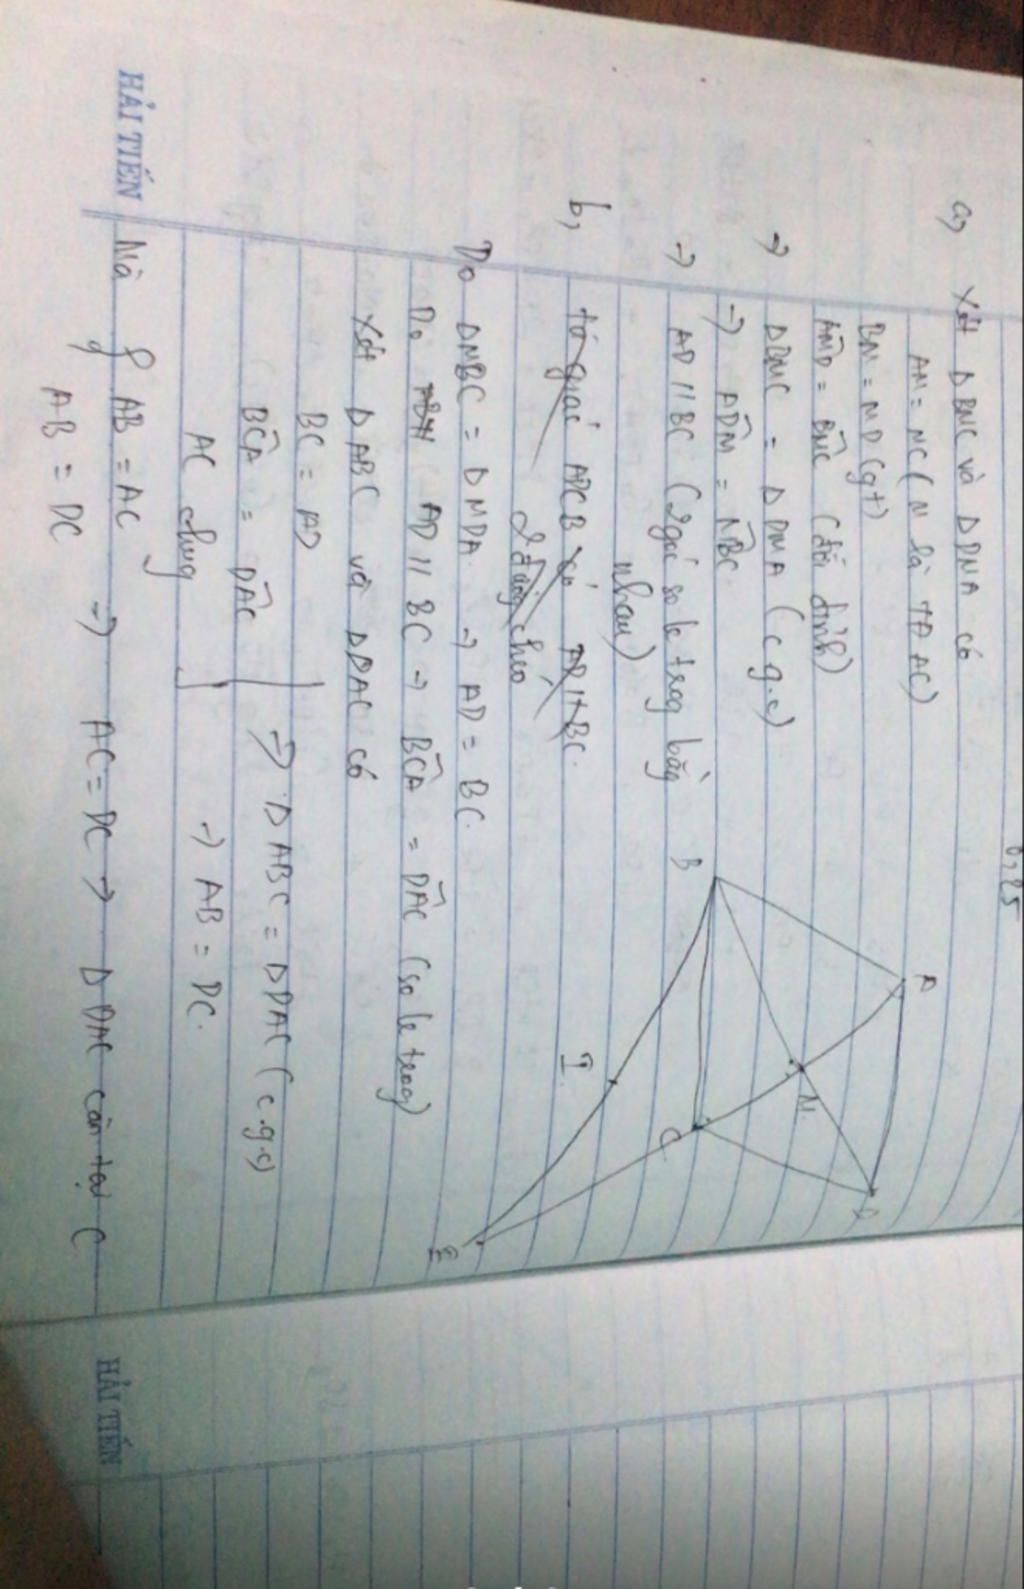 0,25
a, Xét Δ BMC và Δ DMA có
AM = MC ( M là TĐ AC)
BM = MD (gt)
AMD = BMC (đối đỉnh)
→ ΔBMC = Δ DMA ( c.g.c)
→ ADM = MBC
→ AD // BC ( 2 góc so le trog bằg
nhau)
b, tứ giác ADCB có AD // BC.
2 đường chéo
Do ΔMBC = Δ MDA → AD = BC.
Do AD // BC → BCA = DAC (so le trog)
Xét Δ ABC và ΔDAC có
BC = AD
BCA = DAC → Δ ABC = ΔDAC ( c.g.c)
AC chung → AB = DC.
Mà AB = AC → AC = DC → Δ DAC cân tại C
AB = DC
A
B
M
D
C
I
E
HẢI TIẾN
HẢI TIẾN